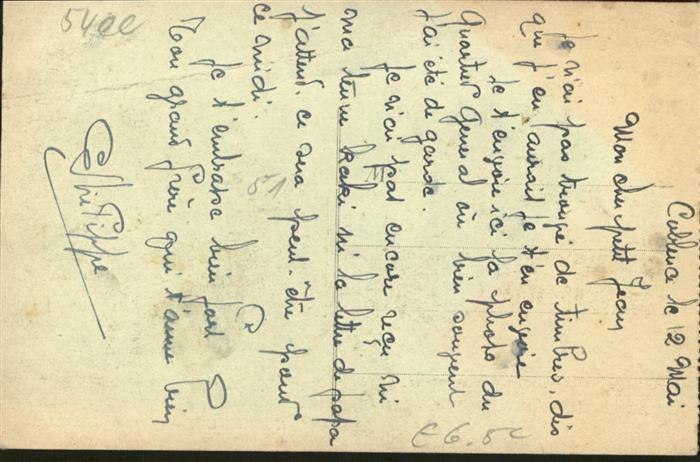 Coblence le 12 Mai
Mon cher petit Jean
Je n'ai pas trouvé de timbres, dès
que j'en aurait je t'en envoie
Je t'envoie ici la photo du
Quartier Général où bien souvent
j'ai été de garde.
Je n'ai pas encore reçu ni
ma tenue kaki ni la lettre de papa
j'attend. ce sera peut-être pour
ce midi.
Je t'embrasse bien fort
Ton grand frère qui t'aime bien
Philippe
5400
51